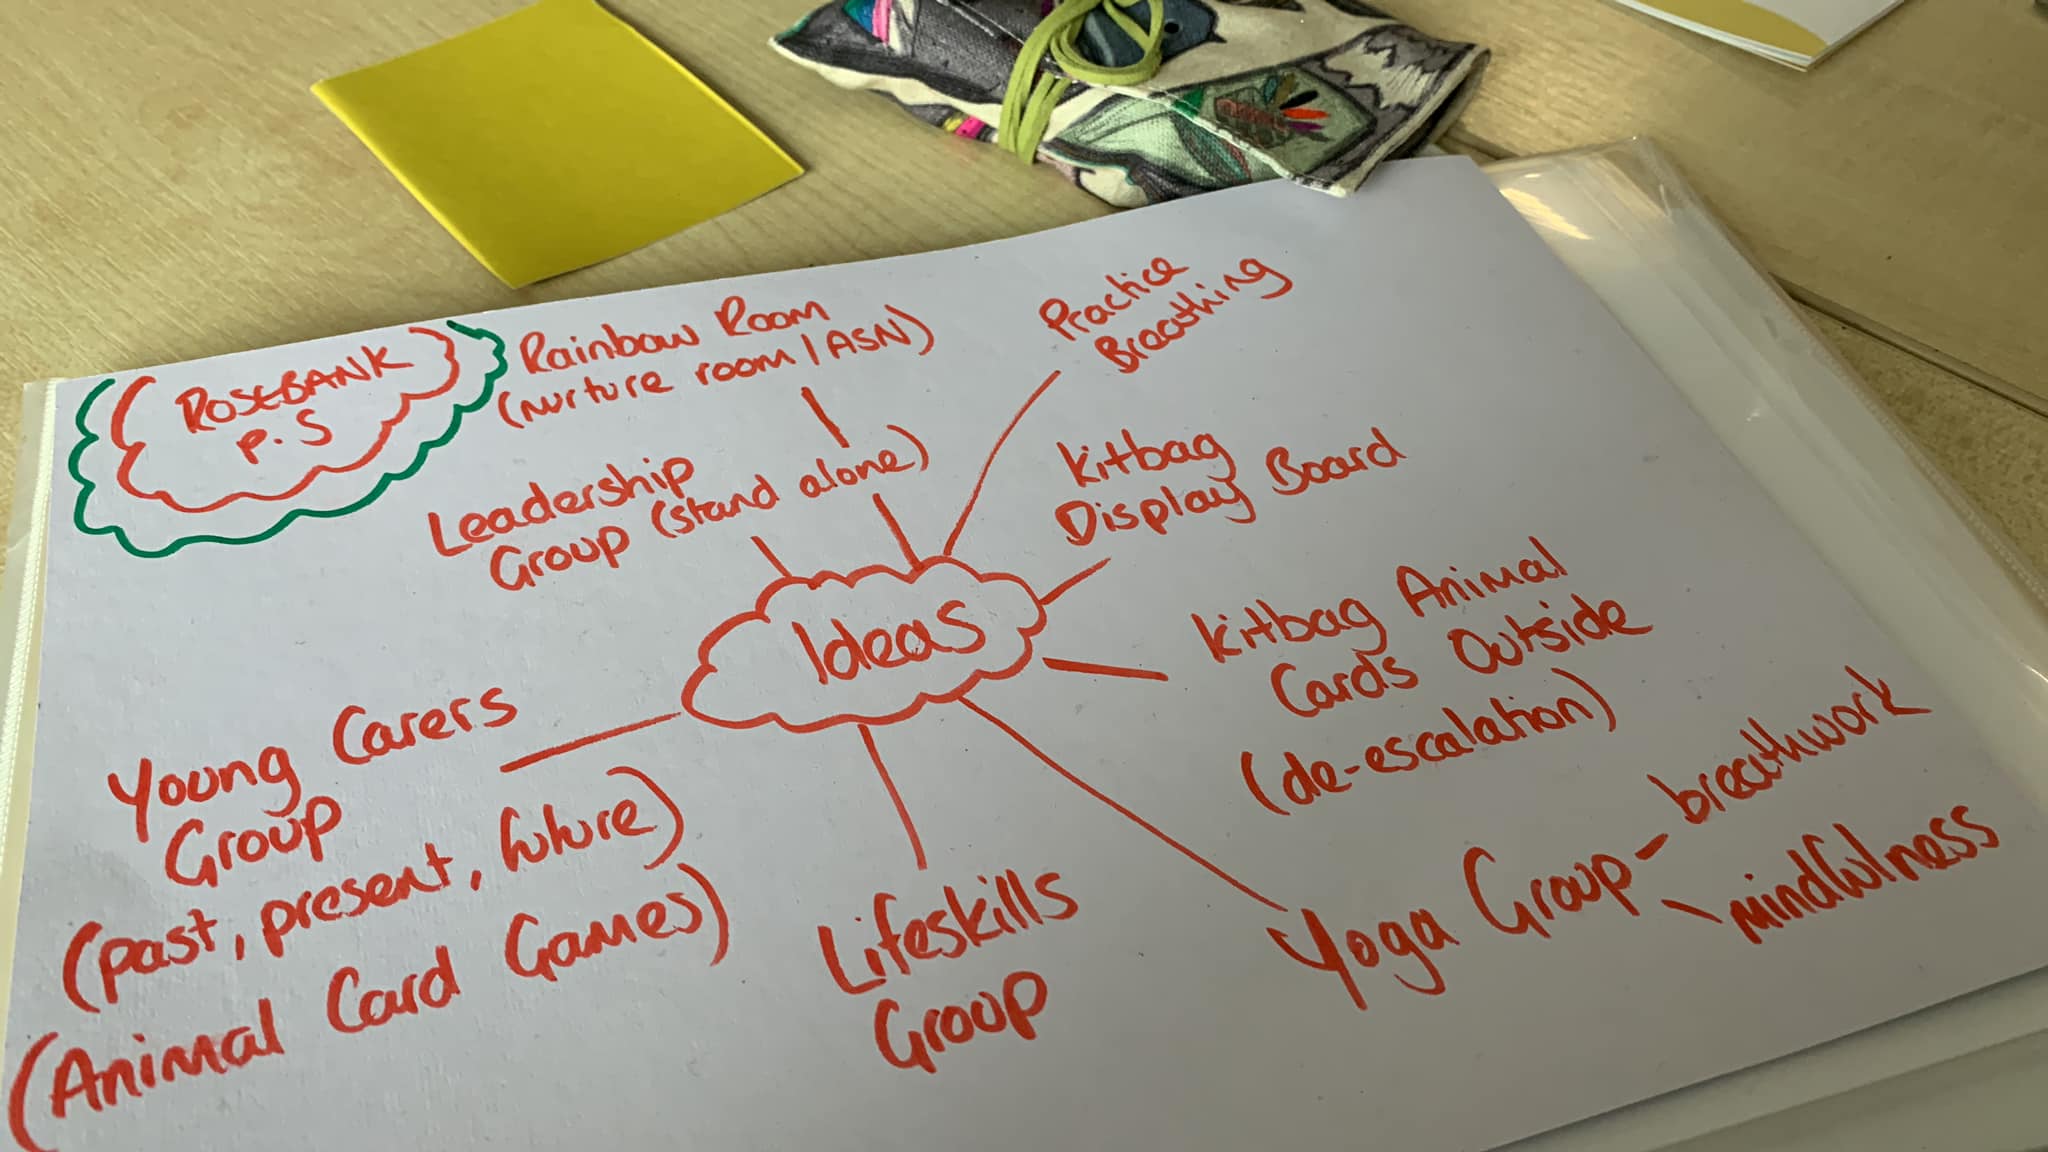 ROSEBANK
P.S
Rainbow Room
(nurture room / ASN)
Practice
Breathing
Leadership
Group (stand alone)
Kitbag
Display Board
Ideas
Kitbag Animal
Cards Outside
(de-escalation)
Young Carers
Group
(past, present, future)
(Animal Card Games)
Lifeskills
Group
Yoga Group - breathwork
- mindfulness